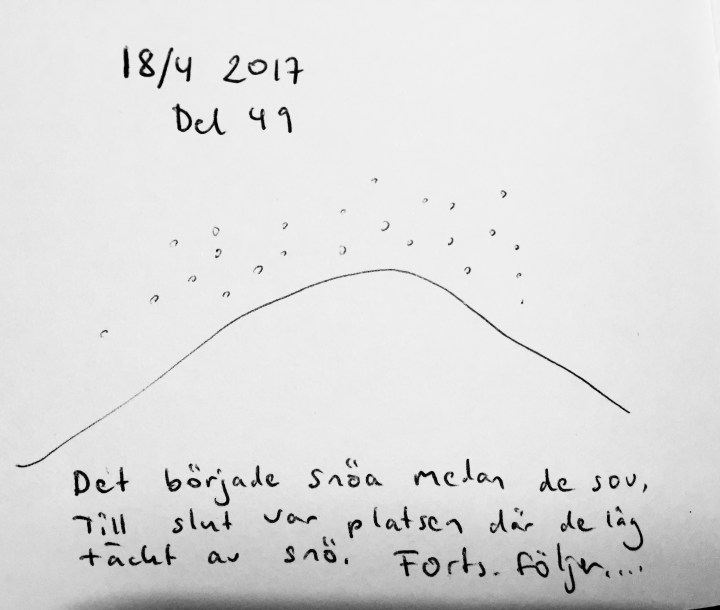 18/4 2017
Del 49
Det började snöa medan de sov,
Till slut var platsen där de låg
täckt av snö. Forts. följer....